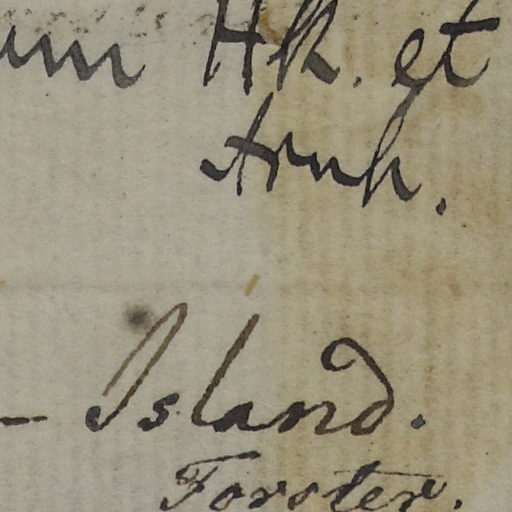 um Hk. et
Arnh.
- Island.
Forster.